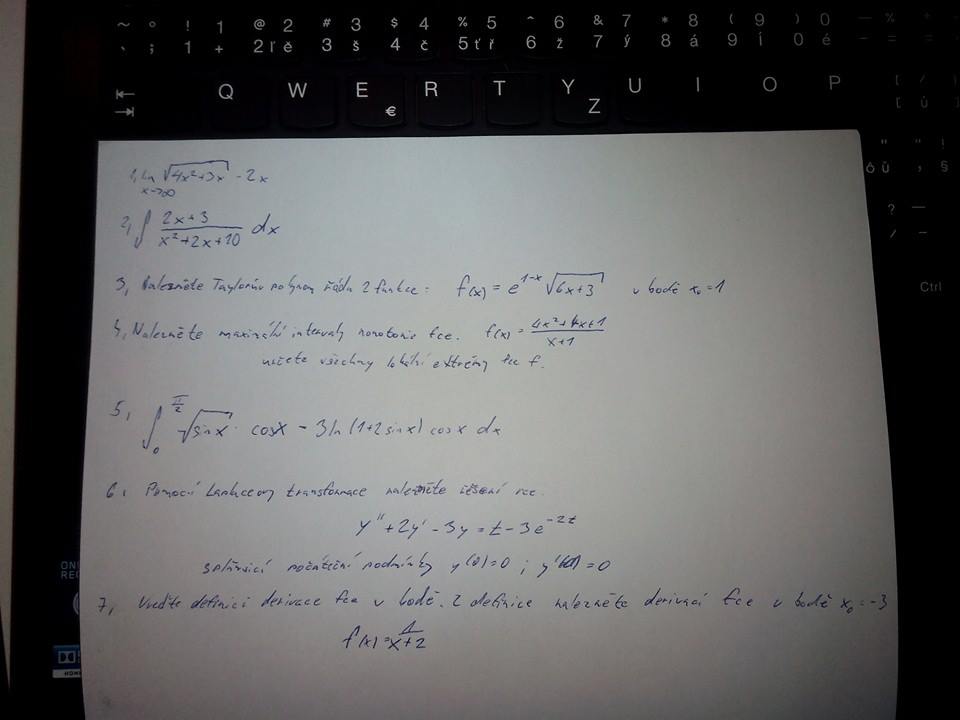 ~ ° ! 1 @ 2 # 3 $ 4 % 5 ^ 6 & 7 * 8 ( 9 ) 0
` ; 1 + 2 ľ ě 3 š 4 č 5 ť ř 6 ž 7 ý 8 á 9 í 0 é
Q W E € R T Y Z U I O P
Ctrl
1, lim x→∞ √(4x²+3x) - 2x
2, ∫ (2x+3)/(x²+2x+10) dx
3, Nalezněte Taylorův polynom řádu 2 funkce: f(x) = e^(1-x) √(6x+3) v bodě x₀=1
4, Nalezněte maximální intervaly monotonie fce. f(x) = (4x²+4x+1)/(x+1)
určete všechny lokální extrémy fce f.
5, ∫₀^(π/2) √(sinx) · cosx - 3ln(1+2sinx) cosx dx
6, Pomocí Laplaceovy transformace nalezněte řešení rce.
y'' + 2y' - 3y = t - 3e^(-2t)
splňující počáteční podmínky y(0)=0 ; y'(0)=0
7, Uveďte definici derivace fce v bodě. Z definice nalezněte derivaci fce v bodě x₀=-3
f(x) = 1/(x+2)